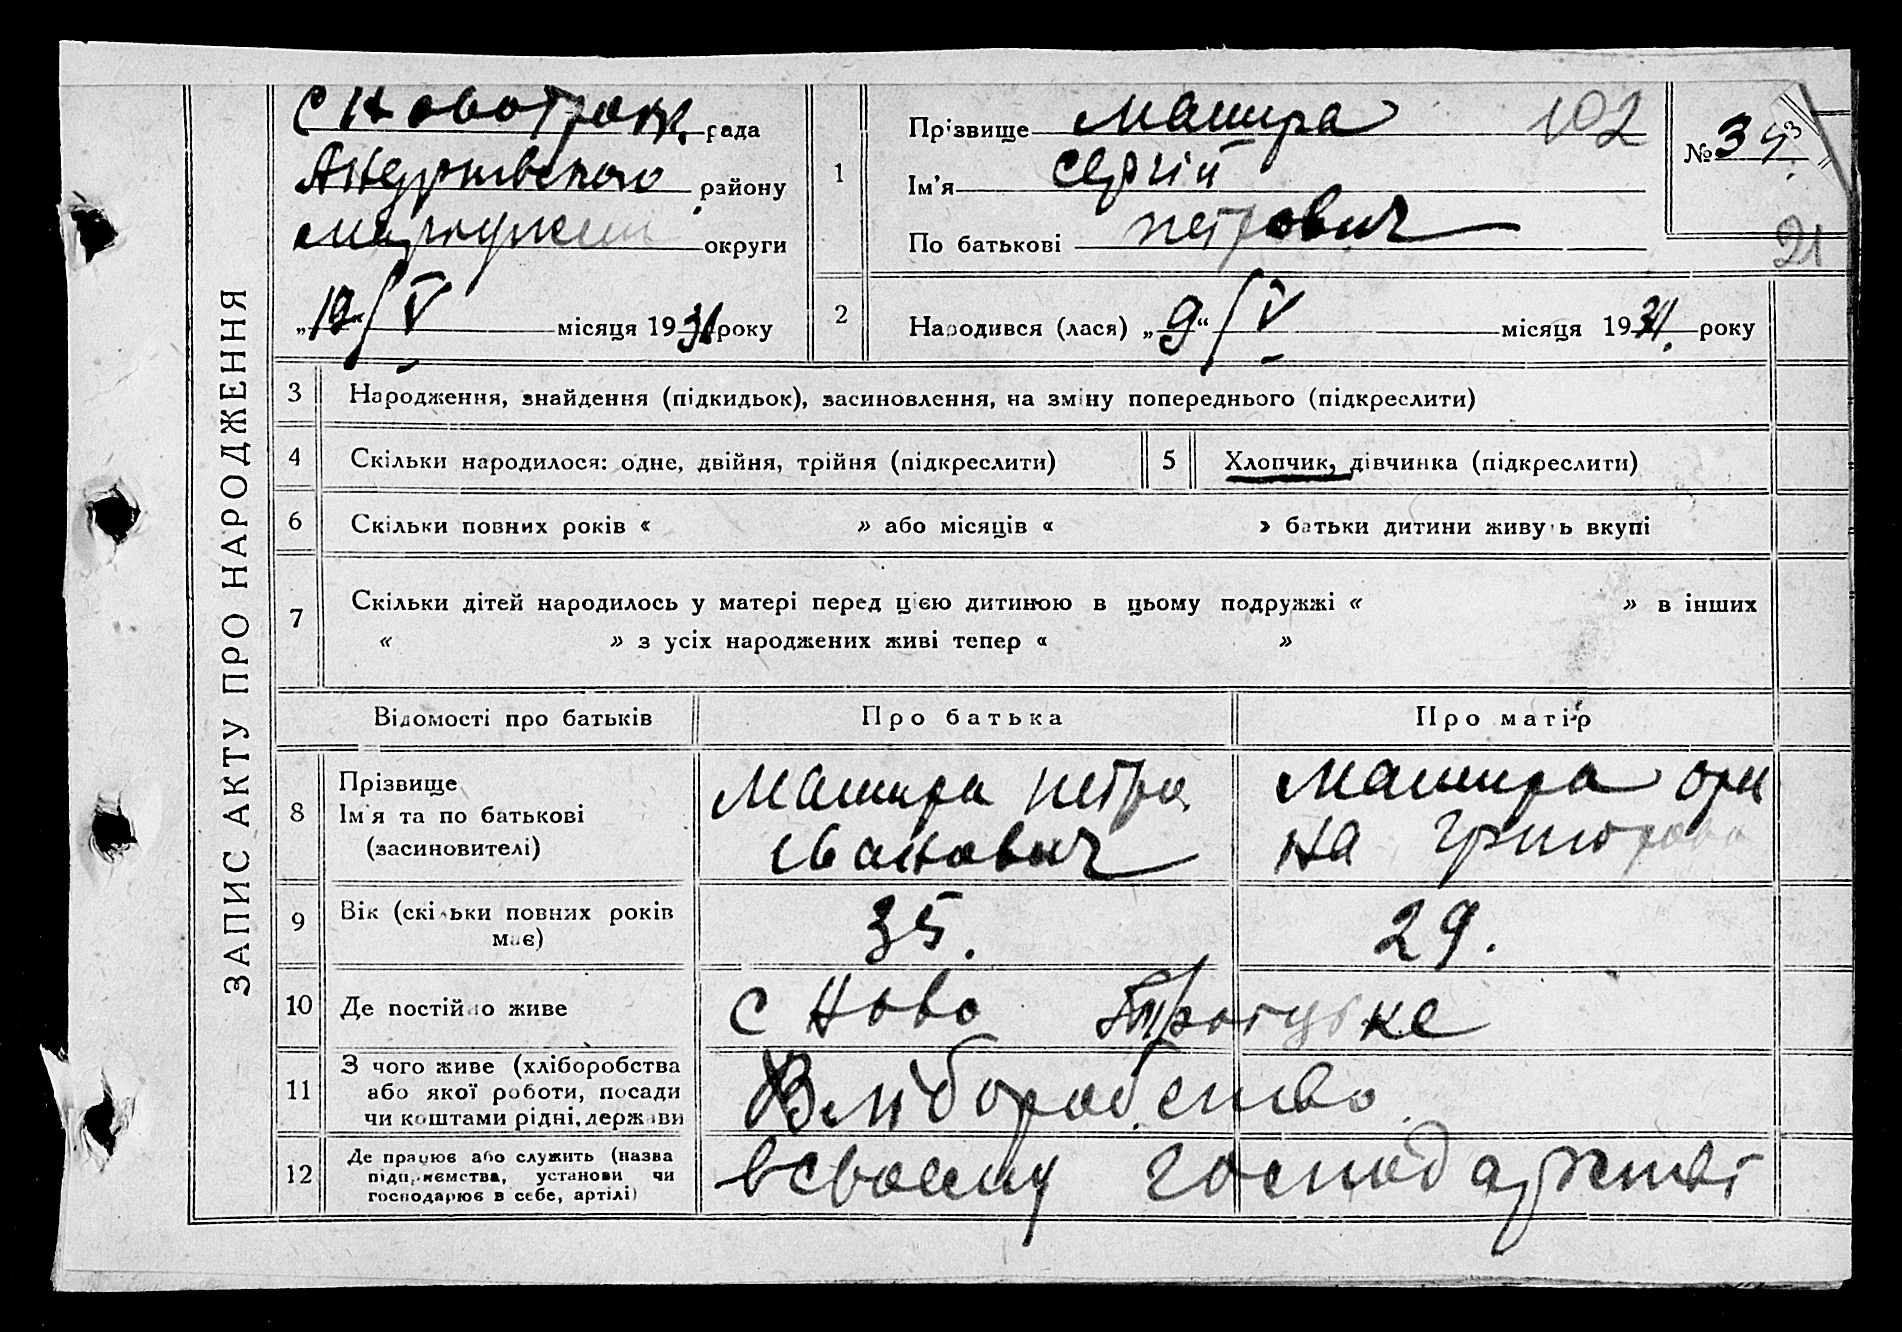 ЗАПИС АКТУ ПРО НАРОДЖЕННЯ
с Новотроїц. рада
району
округи
місяця 1931 року
1
Прізвище Машира 102
Ім'я Сергій
По батькові Петрович
№ 34.
21
2
Народився (лася) „9“ / V місяця 1931. року
3 Народження, знайдення (підкидьок), засиновлення, на зміну попереднього (підкреслити)
4 Скільки народилося: одне, двійня, трійня (підкреслити)
5 Хлопчик, дівчинка (підкреслити)
6 Скільки повних років « » або місяців « » батьки дитини живуть вкупі
7 Скільки дітей народилось у матері перед цією дитиною в цьому подружжі « » в інших
« » з усіх народжених живі тепер « »
Відомості про батьків Про батька Про матір
8 Прізвище
Ім'я та по батькові
(засиновителі)
Машира Петро
Іванович
Машира Ори
на Григорова
9 Вік (скільки повних років
має)
35. 29.
10 Де постійно живе с Ново Троїцьке
11 З чого живе (хліборобства
або якої роботи, посади
чи коштами рідні, держави
Хліборобство
12 Де працює або служить (назва
підприємства, установи чи
господарює в себе, артілі)
в своєму господарстві